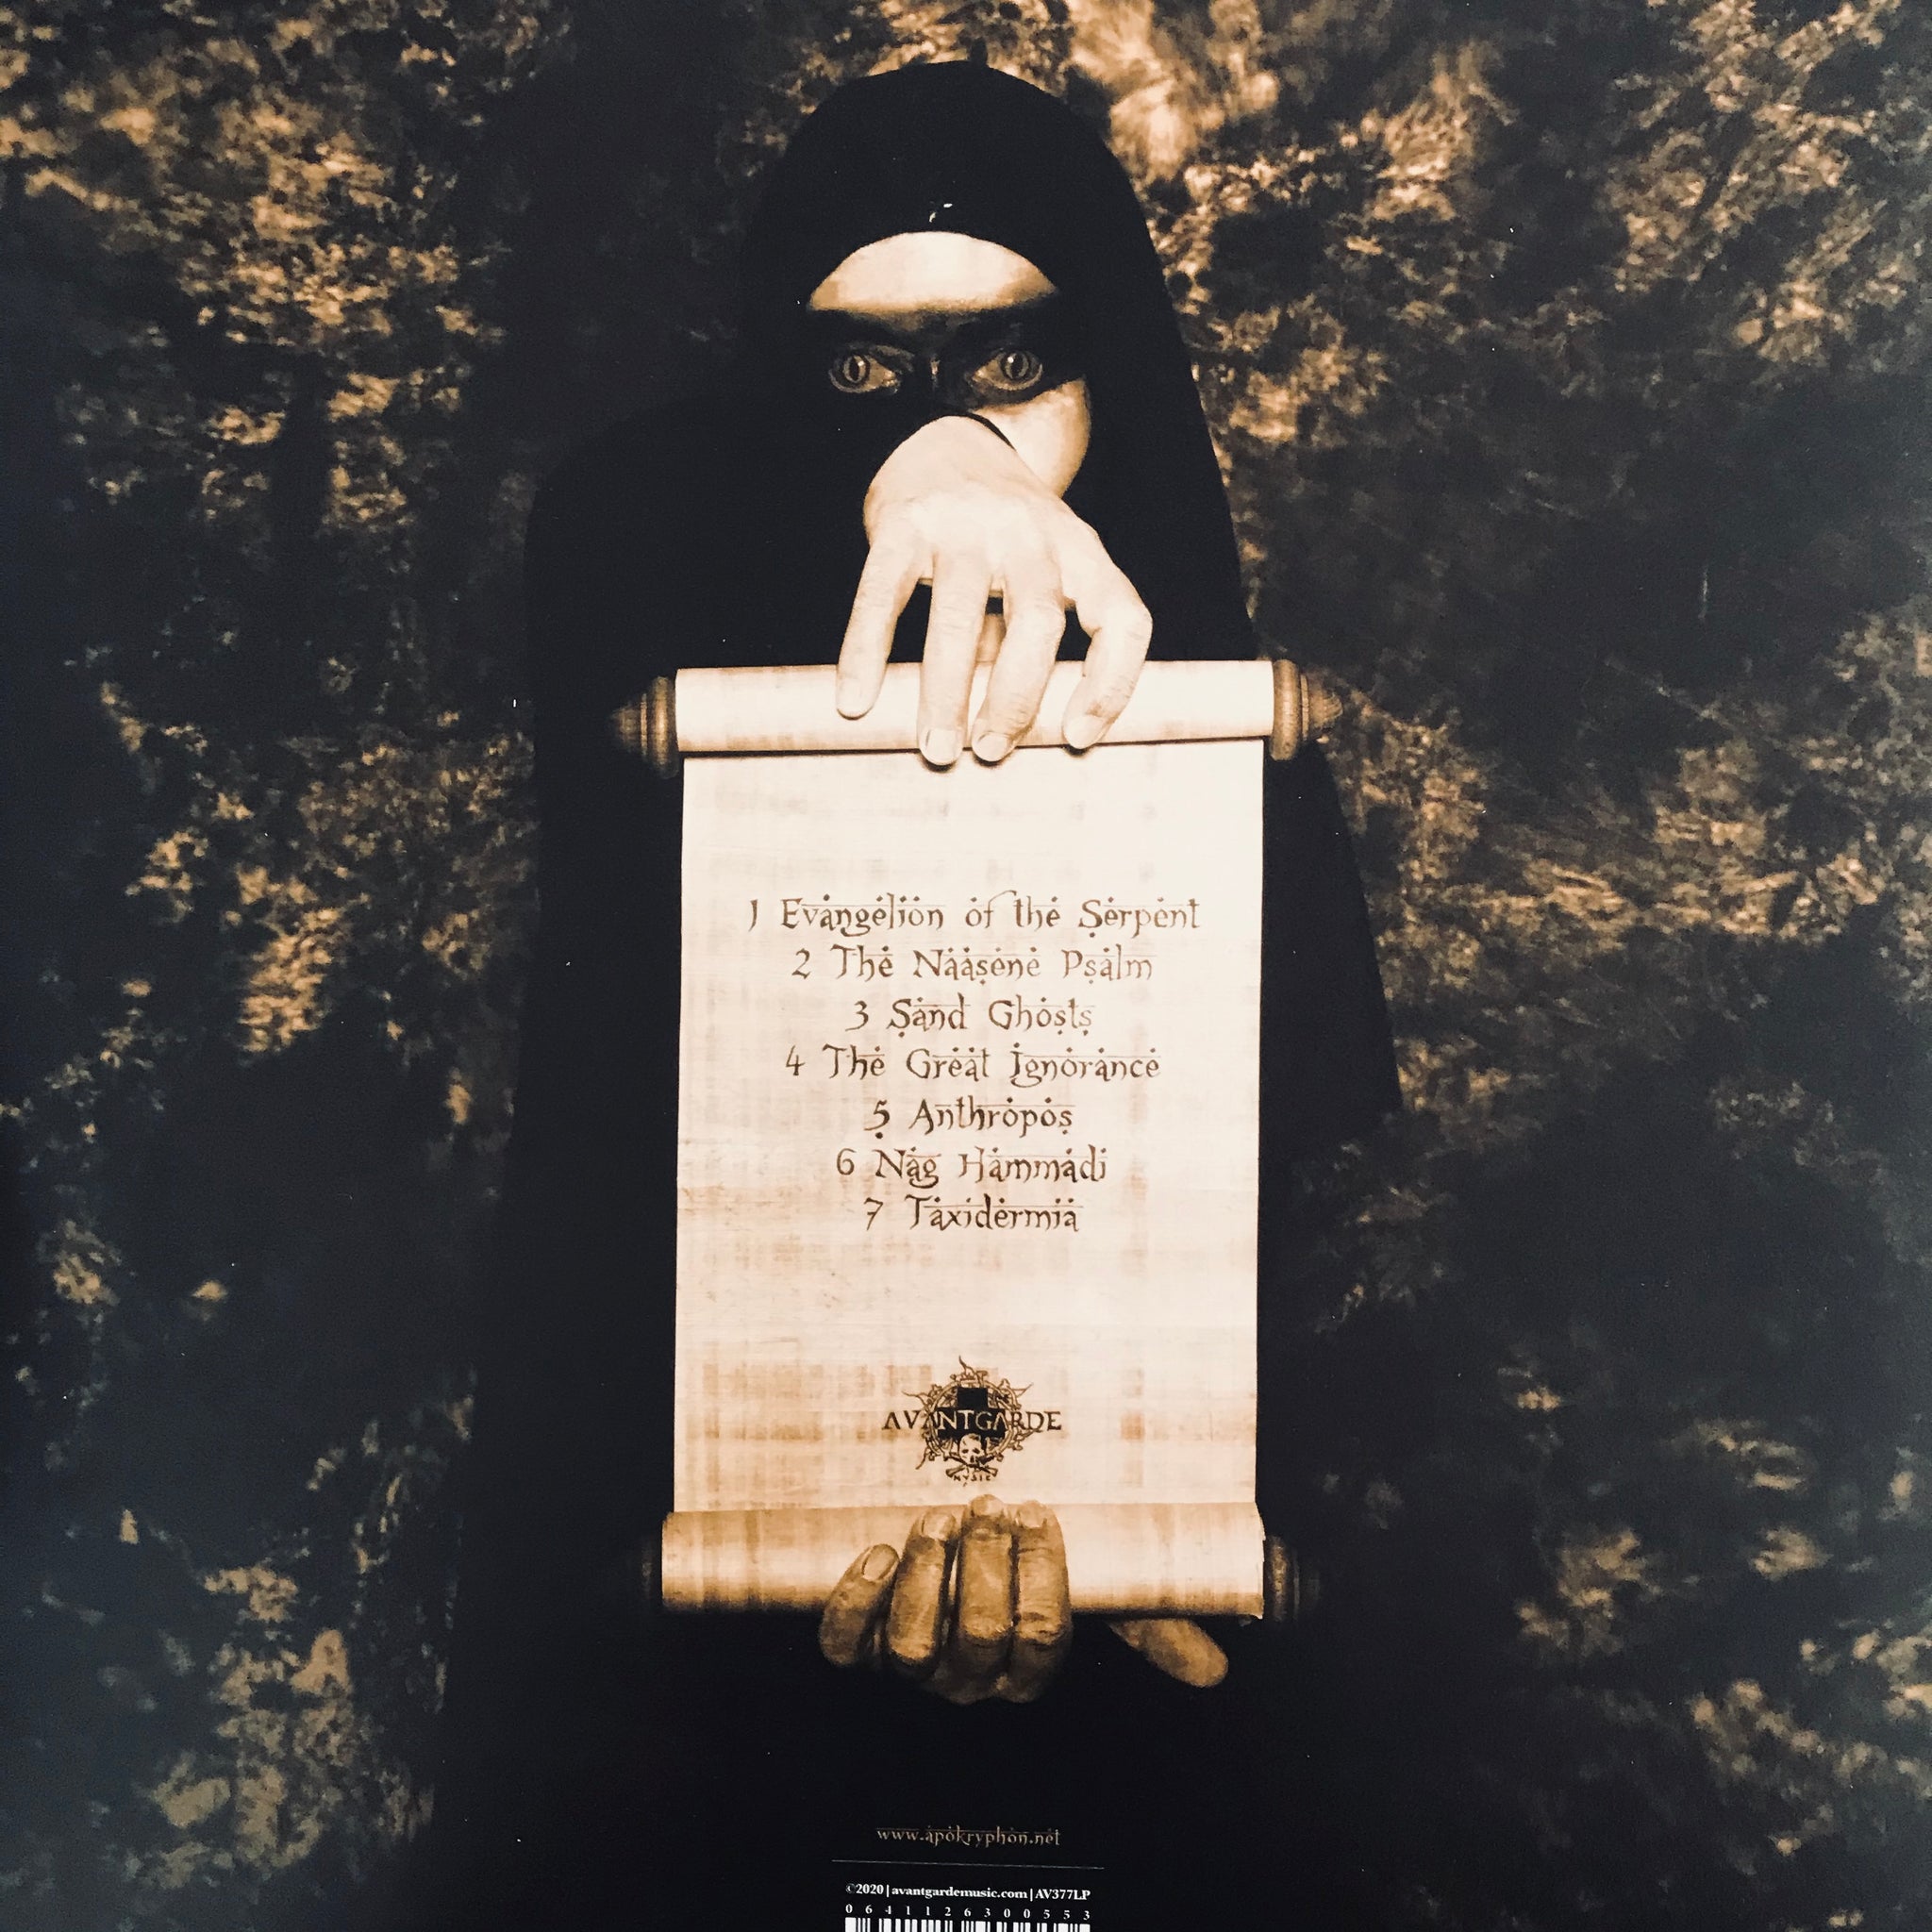 1 Evangelion of the Serpent
2 The Naasene Psalm
3 Sand Ghosts
4 The Great Ignorance
5 Anthropos
6 Nag Hammadi
7 Taxidermia
AVANTGARDE
MUSIC
www.apokryphon.net
©2020 | avantgardemusic.com | AV377LP
0 6 4 1 1 2 6 3 0 0 5 5 3